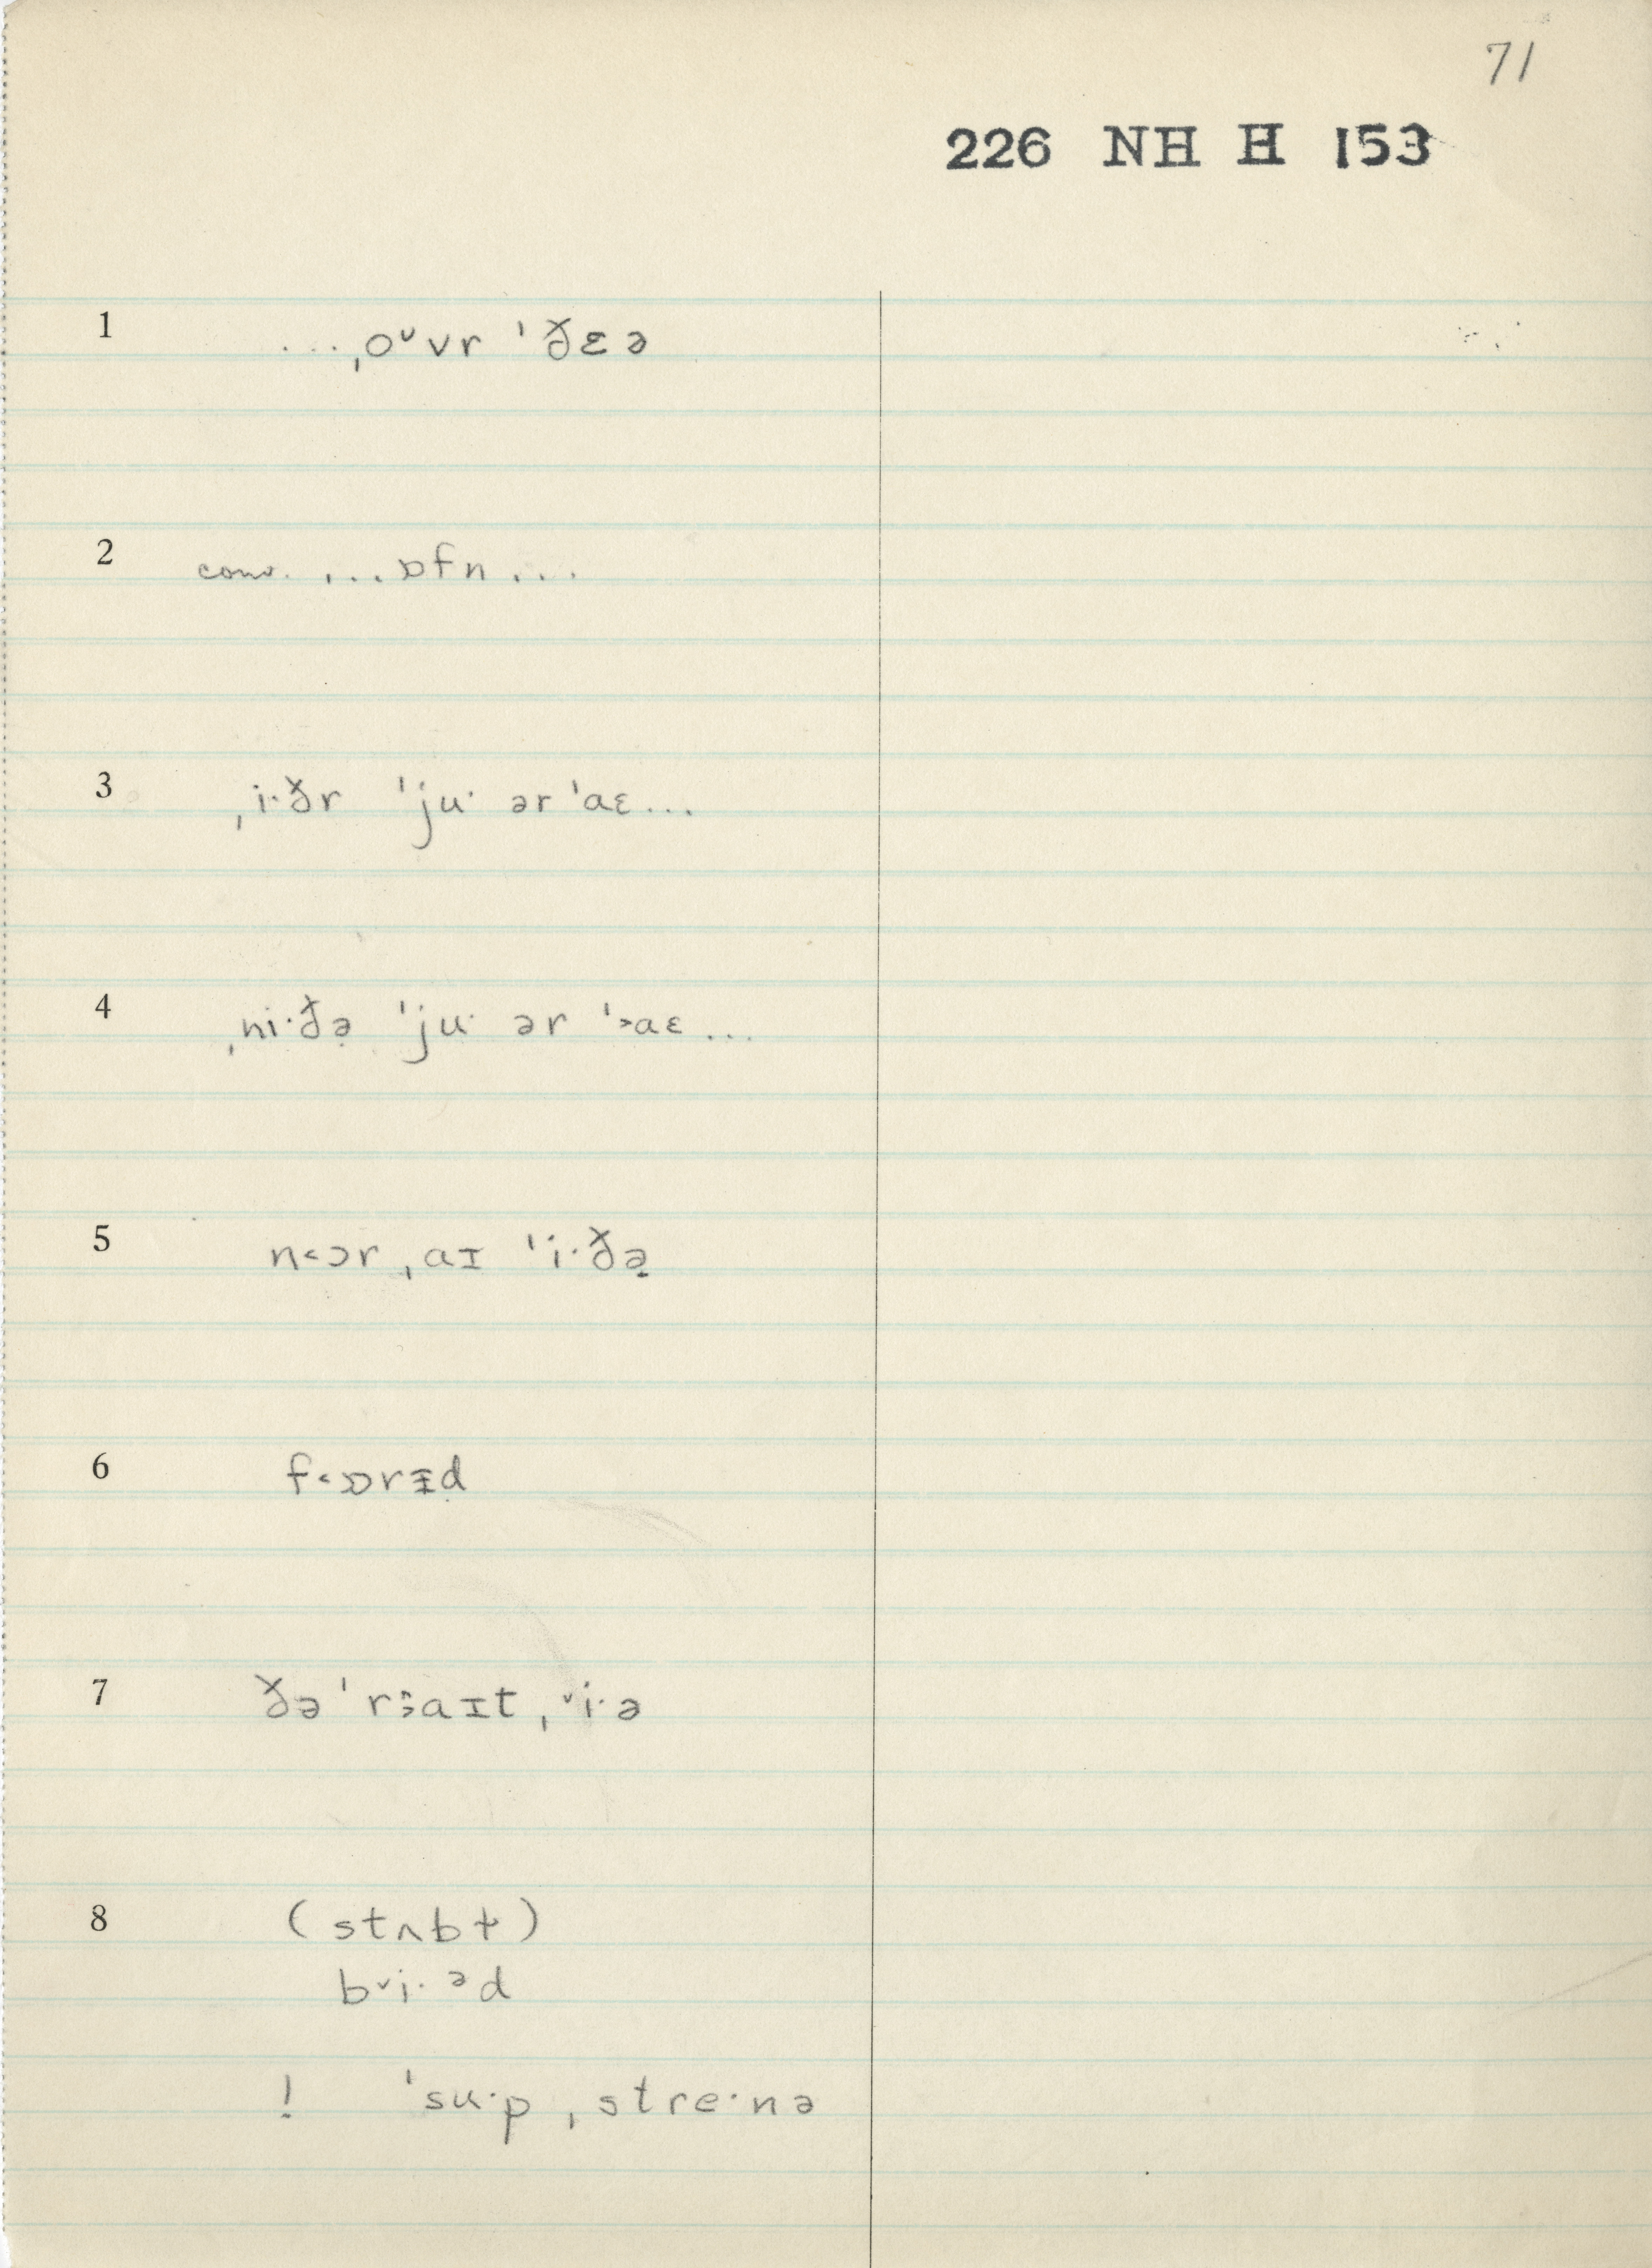 71
226 NH H 153
1 ...ˌoᵛvr ˈðɛə
2 conv. ...ɒfn...
3 ˌi·ðr ˈju· ər ˈaɛ...
4 ˌni·ðə̣ ˈju· ər ˈ˃aɛ...
5 n˂ɔr ˌaɪ ˈi·ðə̣
6 f˂ɒrɪ̵d
7 ðə ˈr˃̂aɪt ˌᵛi·ə
8 (stʌbɫ)
bᵛi·ᵊd
! ˈsu·p ˌstre·nə